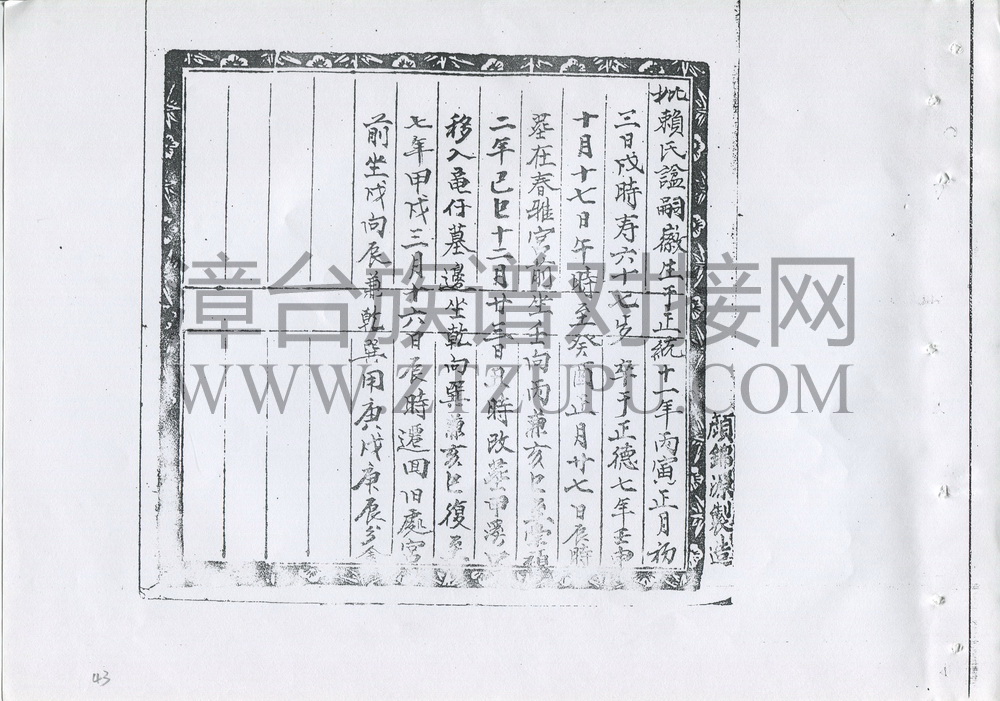 妣賴氏謚嗣徽生于正統十一年丙寅正月初
三日戌時寿六十七岁卒于正德七年壬申
十月十七日午時至癸酉正月廿七日辰時
塟在春雅宮前坐壬向丙兼亥巳
二年己巳十二月廿三日 時改塟
移入黽仔墓邊坐乾向巽兼亥巳復
七年甲戌三月十六日辰時遷回旧處宮
前坐戌向辰兼乾巽用庚戌庚辰分金
顏錦源製造
章台族谱对接网
WWW.ZTZUPU.COM
43